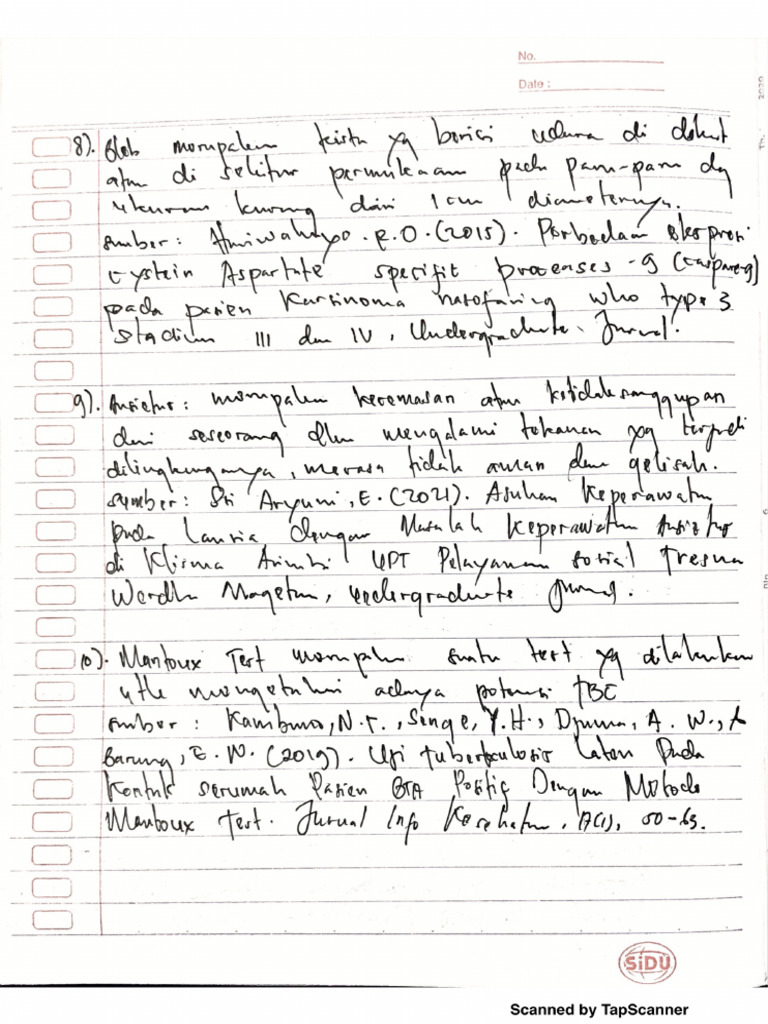 No.
Date :
8). Bleb merupakan kista yg berisi udara di dekat
atau di sekitar permukaan pada paru-paru dg
ukuran kurang dari 1 cm diameternya.
sumber : R.O. (2015). Perbedaan Ekspresi
Cystein Aspartate Specific processes -9 (caspase-9)
pada pasien Karsinoma nasofaring WHO type 3
stadium III dan IV, Undergraduate Jurnal.
9). Ansietas : merupakan kecemasan atau ketidaksanggupan
dari seseorang dlm mengalami tekanan yg terjadi
dilingkungannya, merasa tidak aman dan gelisah.
sumber : Sri Aryuni, E. (2021). Asuhan Keperawatan
pada Lansia dengan Masalah Keperawatan Ansietas
di Klisma Arimbi UPT Pelayanan sosial Tresna
Werdha Magetan, undergraduate Jurnal.
10). Mantoux Test merupakan suatu test yg dilakukan
utk mengetahui adanya potensi TBC
sumber : Kambuno, N.T., Senge, Y.H., Djuma, A. W., &
Barung, E. W. (2019). Uji Tuberkulosis Laten Pada
Kontak serumah Pasien BTA Positif Dengan Metode
Mantoux Test. Jurnal Info Kesehatan, 17(1), 50-63.
SiDU
Scanned by TapScanner